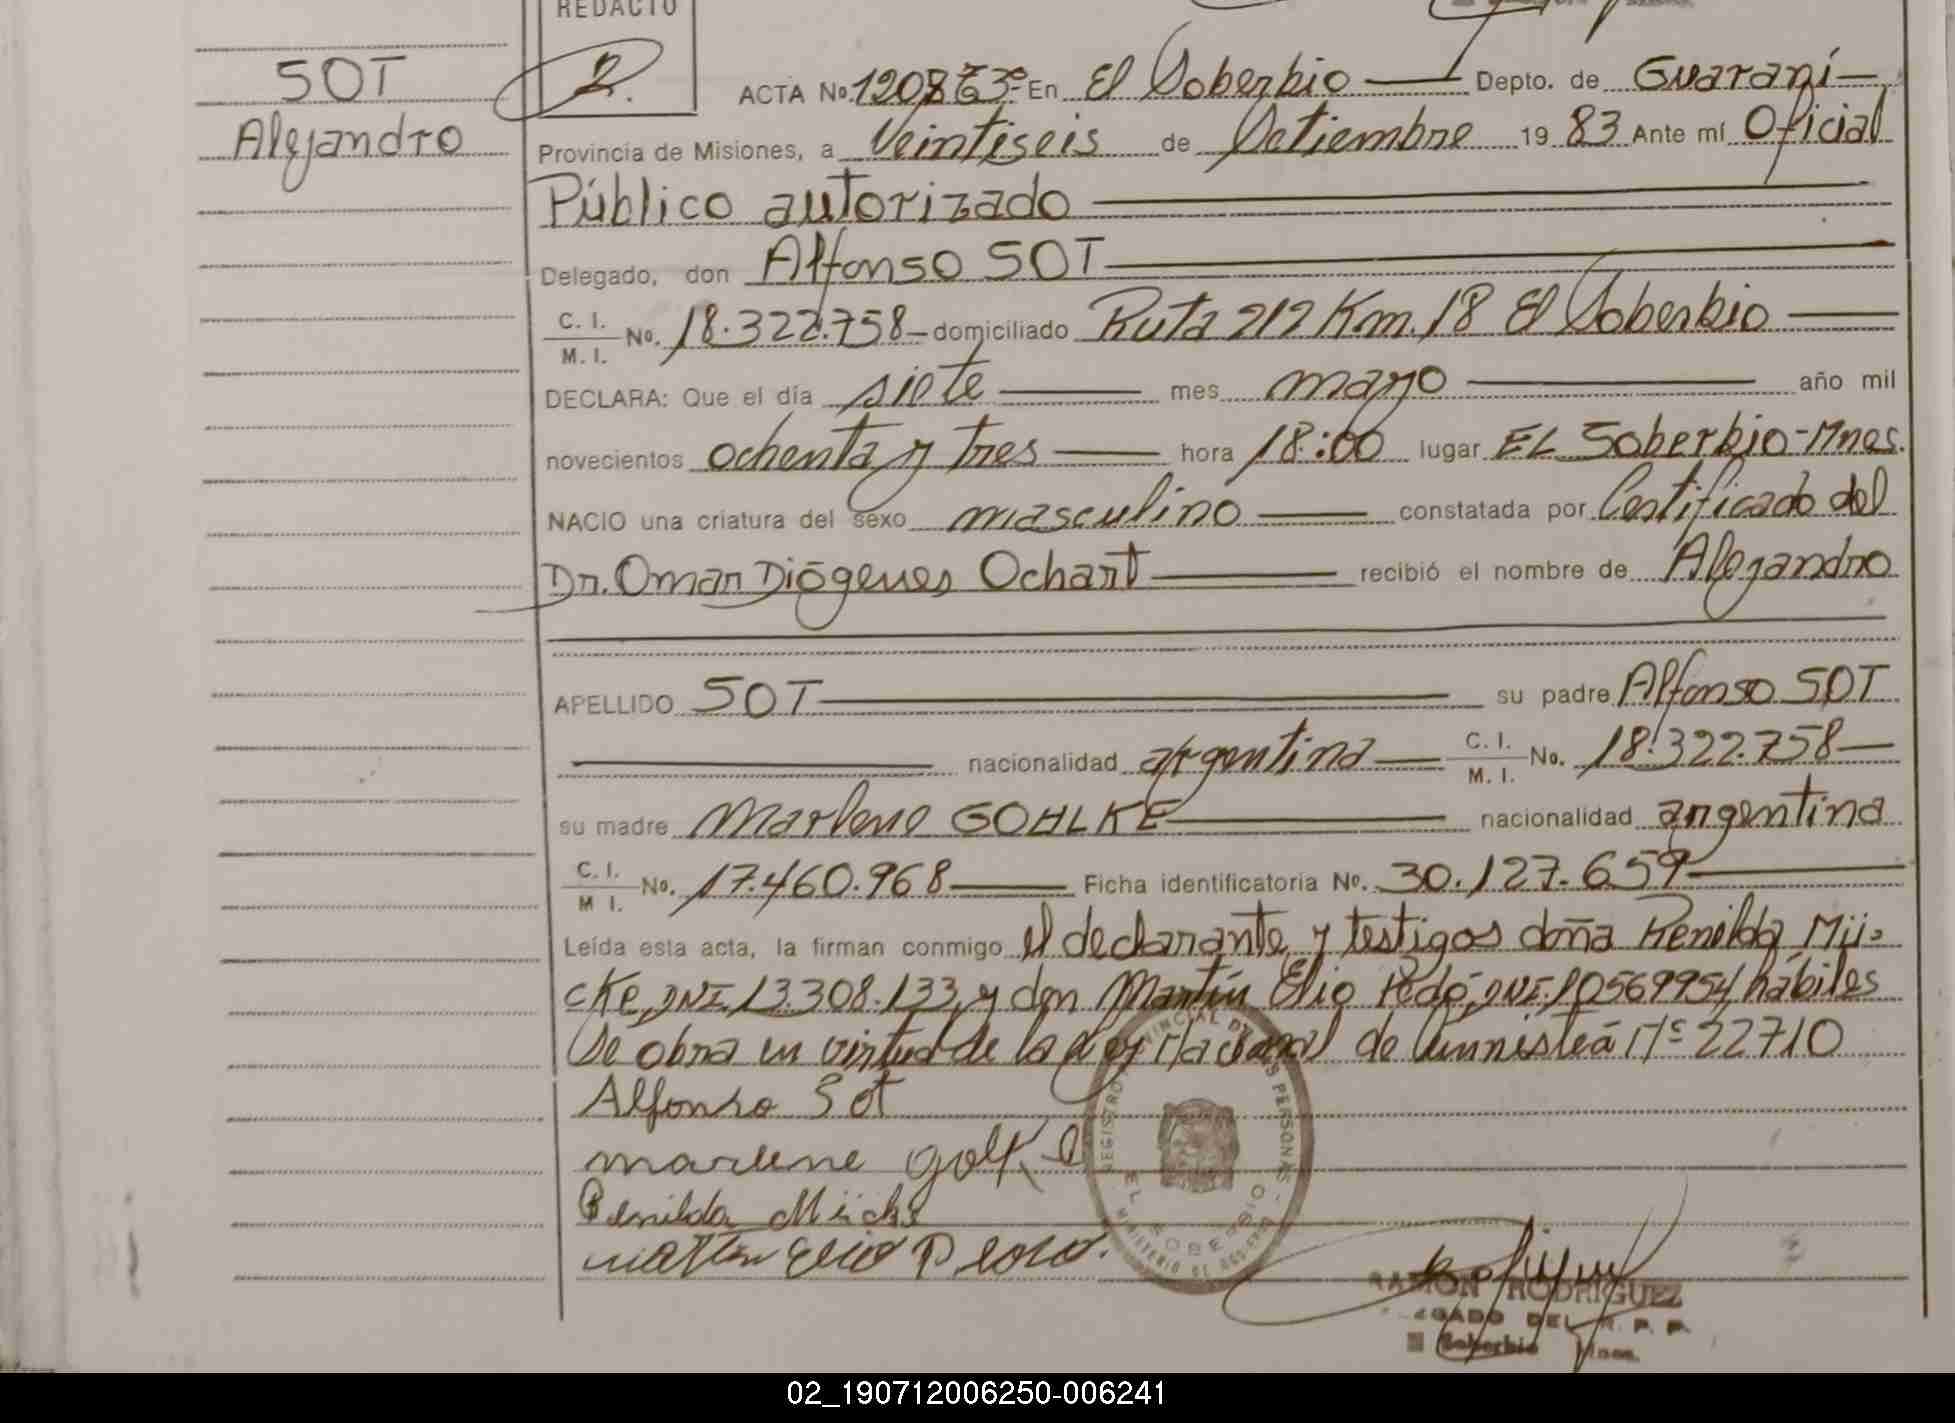 REDACTO
SOT
Alejandro
2.
ACTA No. En El Soberbio Depto. de Guaraní
Provincia de Misiones, a Veintiseis de Octiembre 19 83 Ante mí Oficial
Público autorizado
Delegado, don Alfonso SOT
C. I. M. I. No. 18.322.758 domiciliado Ruta 212 Km. 18 El Soberbio
DECLARA: Que el día siete mes mayo año mil
novecientos ochenta y tres hora 18:00 lugar EL Soberbio-Mnes.
NACIO una criatura del sexo masculino constatada por Certificado del
Dr. Omar Diógenes Ochart recibió el nombre de Alejandro
APELLIDO SOT su padre Alfonso SOT
nacionalidad argentina C. I. M. I. No. 18.322.758
su madre Marlene GOHLKE nacionalidad argentina
C. I. M I. No. 17.460.968 Ficha identificatoria No. 30.127.659
Leída esta acta, la firman conmigo el declarante y testigos doña Renilda Mü-
cke, DNI. 13.308.133, y don Martín Elio Pedó, DNI. 10569954 hábiles
Se obra en virtud de la Ley Nacional de Amnisteá Nº 22710
Alfonso Sot
marlene golke
Renilda
REGISTRO PROVINCIAL DE LAS PERSONAS
EL SOBERBIO
MINISTERIO DE GOBIERNO
RAMON RODRIGUEZ
DEL R. P. P.
Soberbio Mnes.
02_190712006250-006241